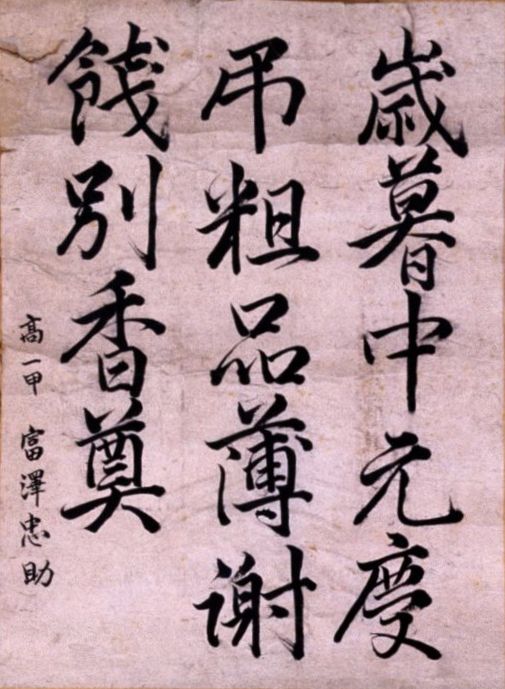 歳暮中元慶
吊粗品薄謝
餞別香奠
高一甲 富澤忠助